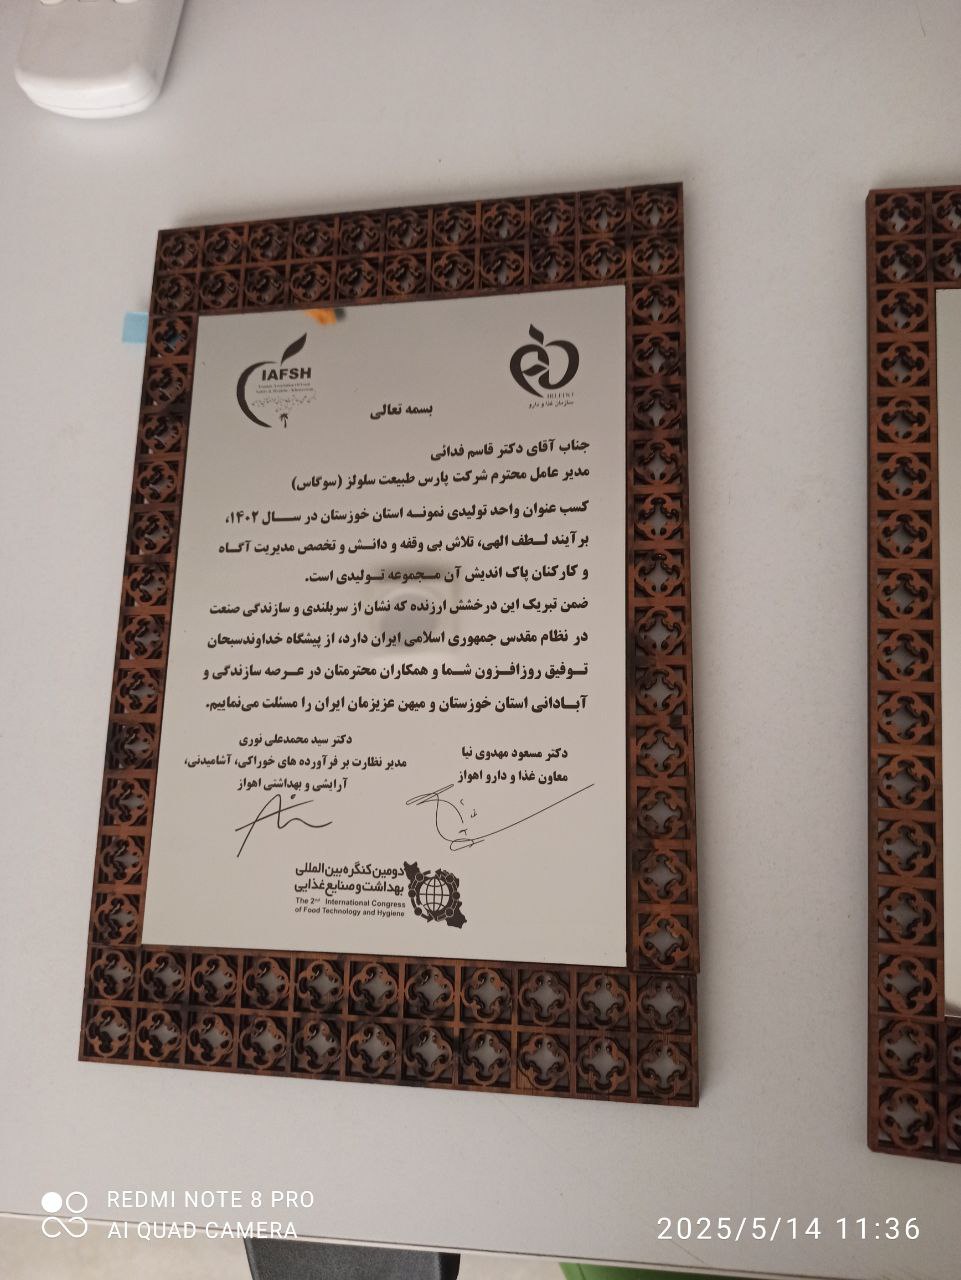 IAFSH
سازمان غذا و دارو
بسمه تعالی
جناب آقای دکتر قاسم فدائی
مدیر عامل محترم شرکت پارس طبیعت سلولز (سوگاس)
کسب عنوان واحد تولیدی نمونه استان خوزستان در سال ۱۴۰۲،
برآیند لطف الهی، تلاش بی وقفه و دانش و تخصص مدیریت آگاه
و کارکنان پاک اندیش آن مجموعه تولیدی است.
ضمن تبریک این درخشش ارزنده که نشان از سربلندی و سازندگی صنعت
در نظام مقدس جمهوری اسلامی ایران دارد، از پیشگاه خداوندسبحان
توفیق روزافزون شما و همکاران محترمتان در عرصه سازندگی و
آبادانی استان خوزستان و میهن عزیزمان ایران را مسئلت می‌نماییم.
دکتر مسعود مهدوی نیا
معاون غذا و دارو اهواز
دکتر سید محمدعلی نوری
مدیر نظارت بر فرآورده های خوراکی، آشامیدنی،
آرایشی و بهداشتی اهواز
دومین کنگره بین المللی
بهداشت و صنایع غذایی
The 2nd International Congress
of Food Technology and Hygiene
REDMI NOTE 8 PRO
AI QUAD CAMERA
2025/5/14 11:36